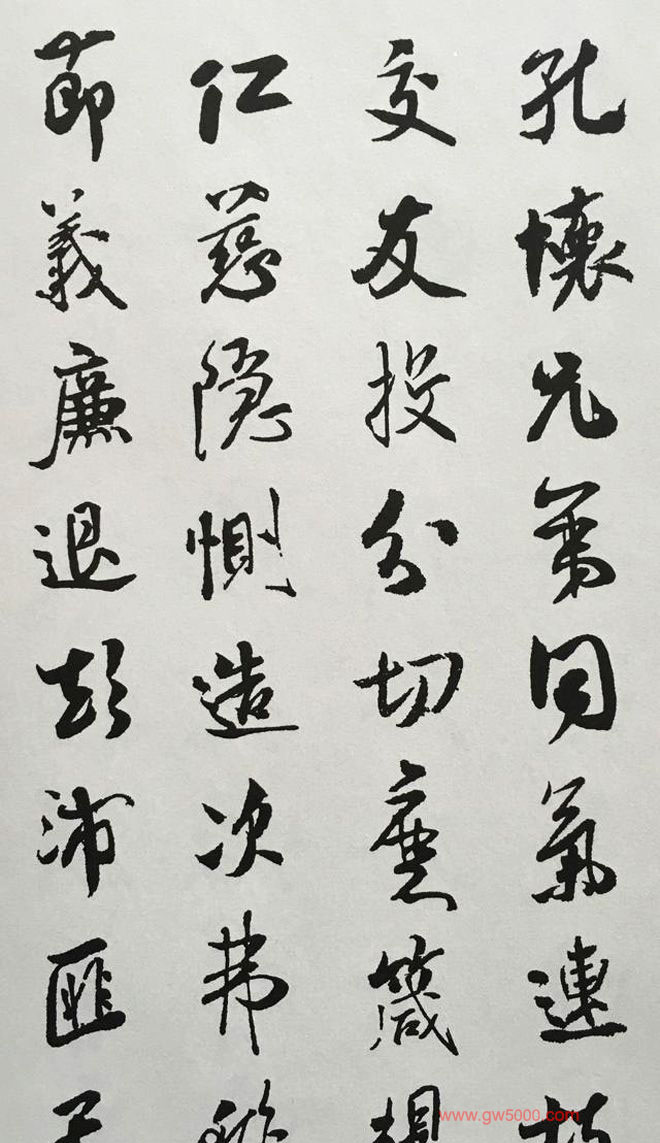 孔懷兄弟同氣連
交友投分切磨箴
仁慈隱惻造次弗
節義廉退顛沛匪
www.gw5000.com